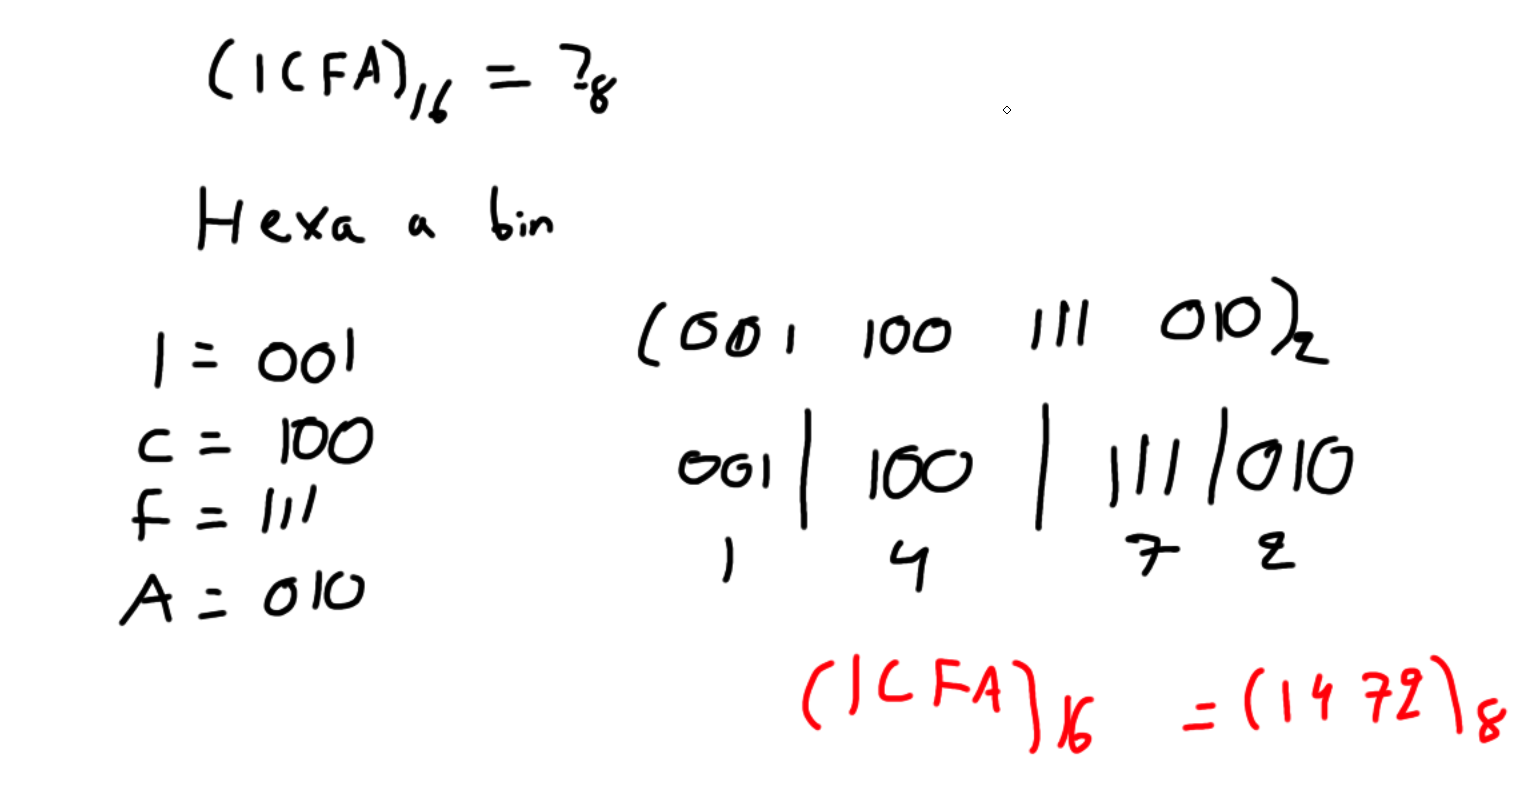 (1CFA)16 = ?8
Hexa a bin
1 = 001
C = 100
F = 111
A = 010
(001 100 111 010)2
001 | 100 | 111 | 010
1 4 7 2
(1CFA)16 = (1472)8